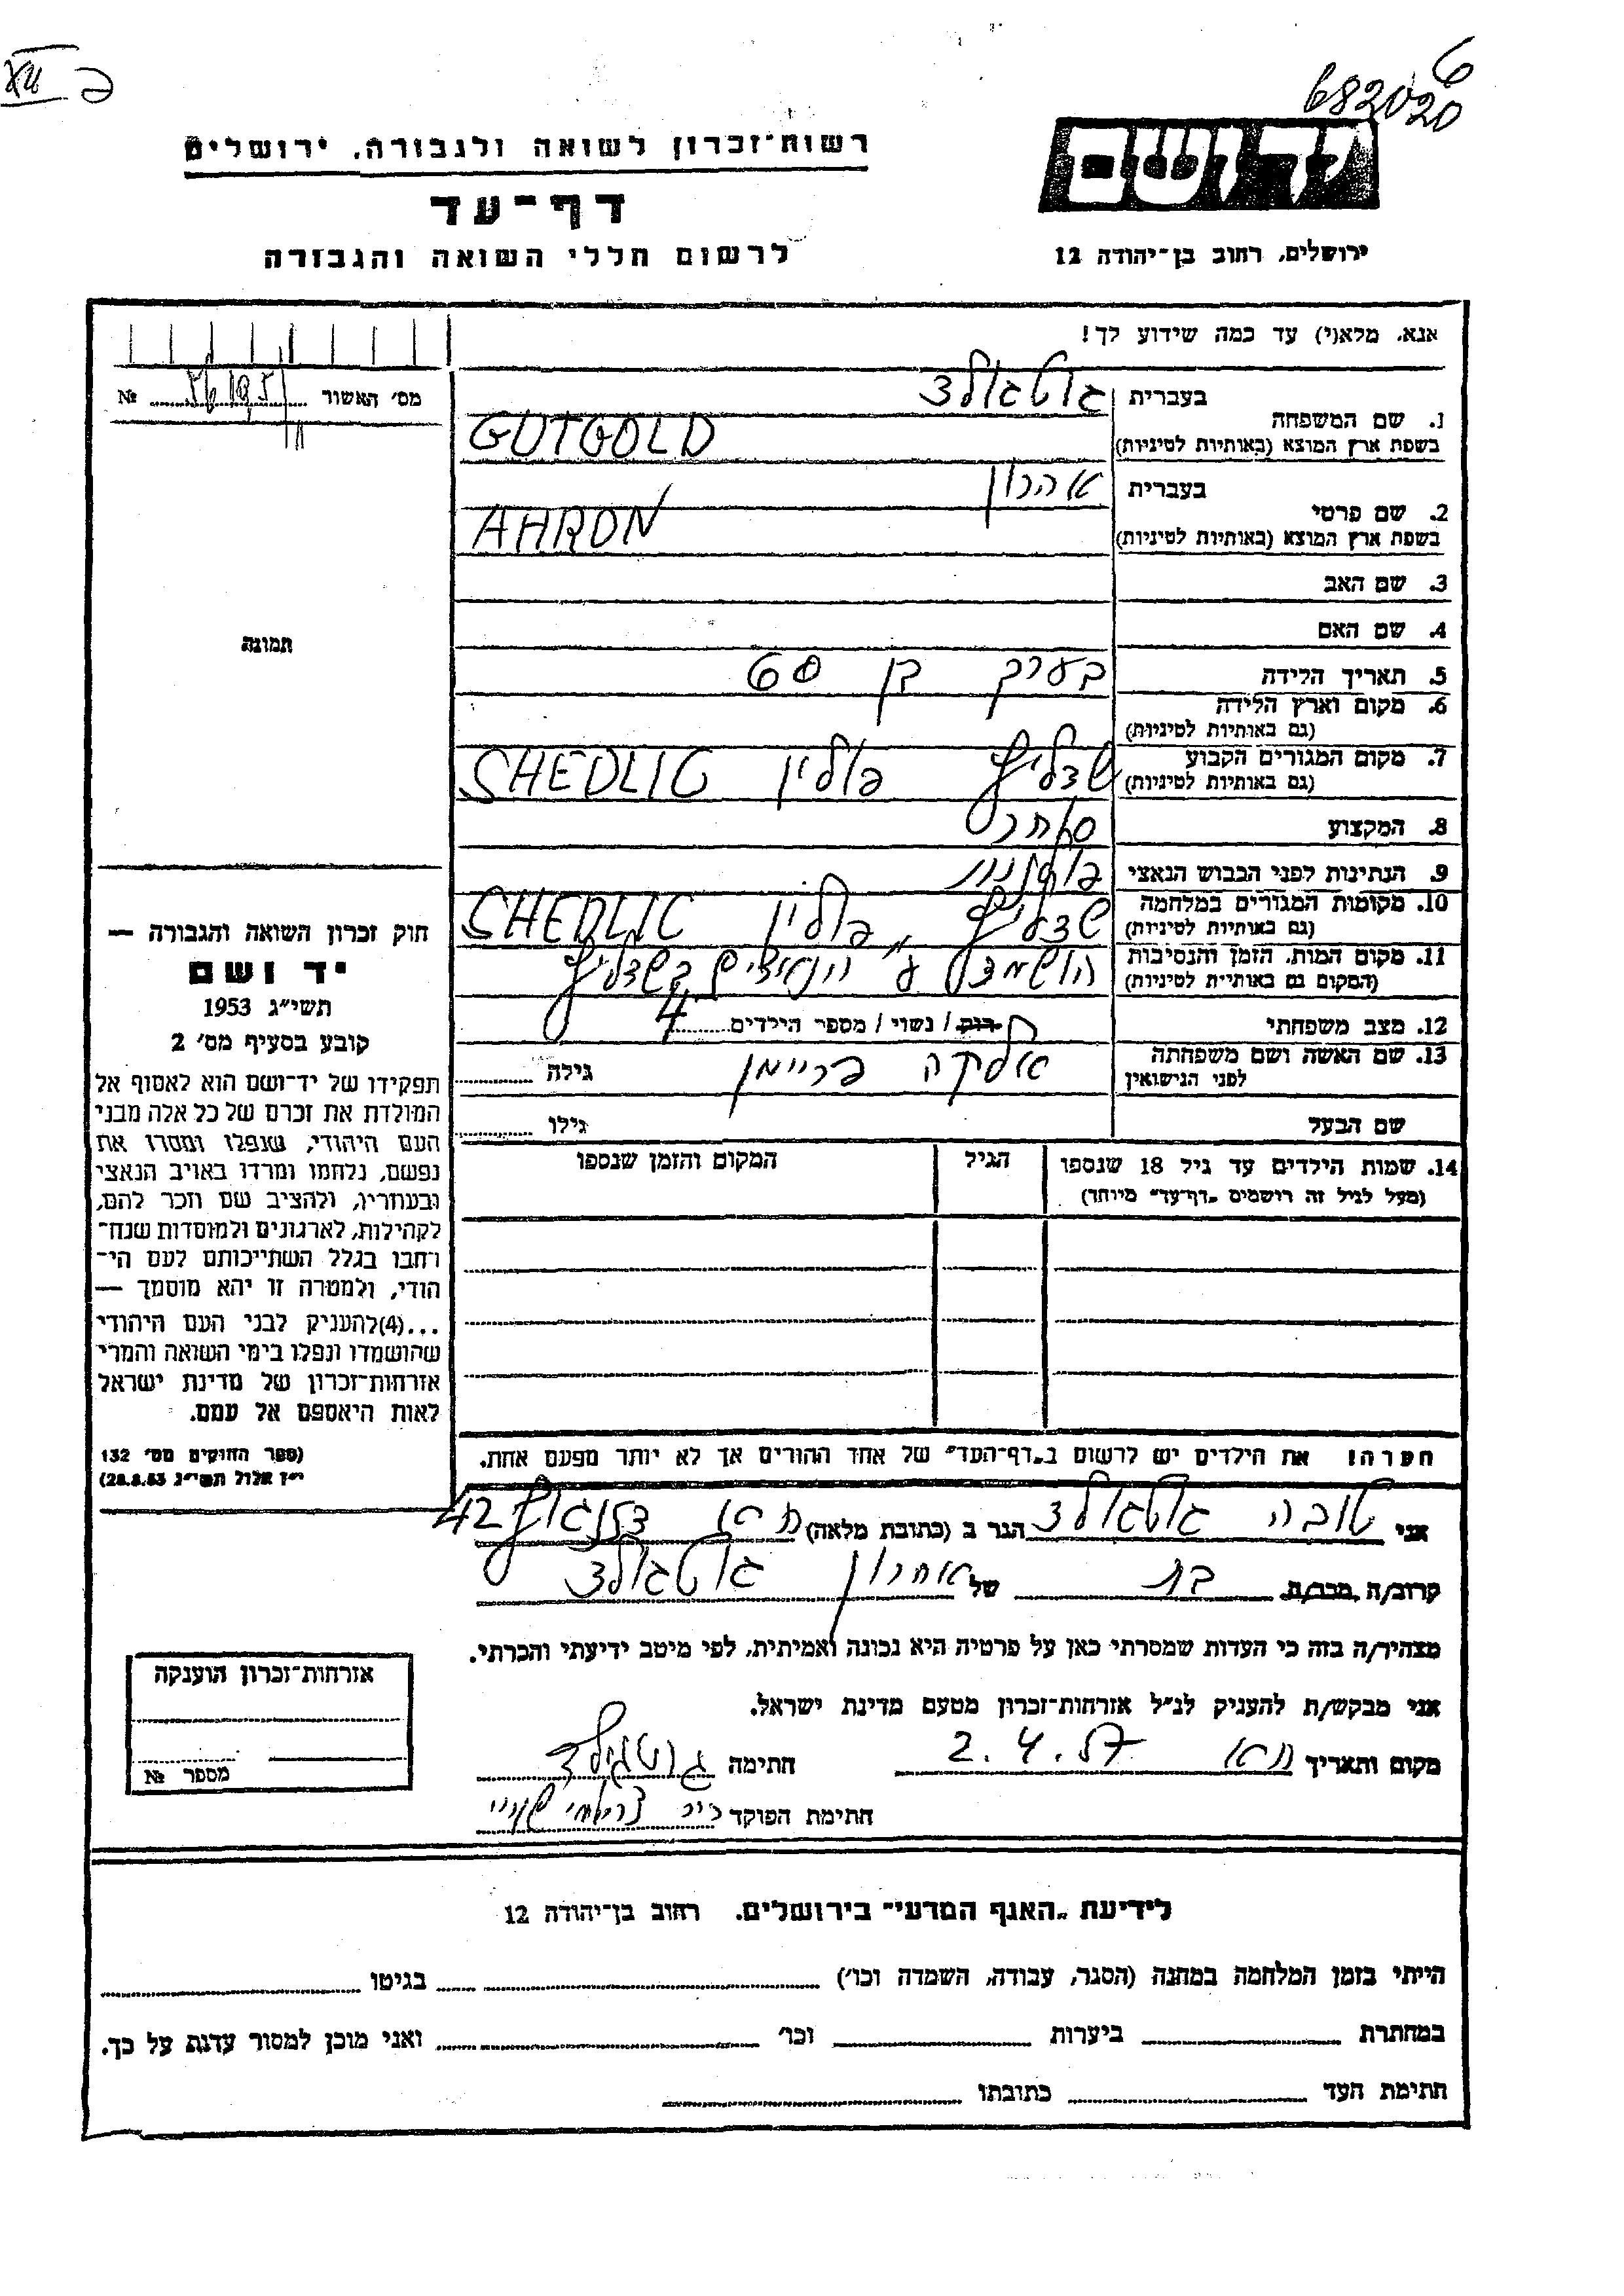 682020
רשות־זכרון לשואה ולגבורה, ירושלים
דף־עד
לרשום חללי השואה והגבורה
יד ושם
ירושלים, רחוב בן־יהודה 12
אנא, מלא(י) עד כמה שידוע לך!
מס׳ האשור № 
1. שם המשפחה בעברית גוטגולד
בשפת ארץ המוצא (באותיות לטיניות) GUTGOLD
2. שם פרטי בעברית אהרון
בשפת ארץ המוצא (באותיות לטיניות) AHRON
3. שם האב
4. שם האם
תמונה
5. תאריך הלידה בערך בן 60
6. מקום וארץ הלידה
(גם באותיות לטיניות)
7. מקום המגורים הקבוע שדליץ פולין SHEDLIC
(גם באותיות לטיניות)
8. המקצוע סוחר
9. הנתינות לפני הכבוש הנאצי פולנית
10. מקומות המגורים במלחמה שדליץ פולין SHEDLIC
(גם באותיות לטיניות)
11. מקום המות, הזמן והנסיבות הושמד ע״י הנאצים בשדליץ
(המקום גם באותיות לטיניות)
12. מצב משפחתי רוק / נשוי / מספר הילדים 4
13. שם האשה ושם משפחתה לפני הנישואין אלקה פריימן גילה
שם הבעל גילו
14. שמות הילדים עד גיל 18 שנספו הגיל המקום והזמן שנספו
(מעל לגיל זה רושמים „דף־עד״ מיוחד)
חוק זכרון השואה והגבורה —
יד ושם
תשי״ג 1953
קובע בסעיף מס׳ 2
תפקידו של יד־ושם הוא לאסוף אל
המולדת את זכרם של כל אלה מבני
העם היהודי, שנפלו ומסרו את
נפשם, נלחמו ומרדו באויב הנאצי
ובעוזריו, ולהציב שם וזכר להם,
לקהילות, לארגונים ולמוסדות שנח־
רבו בגלל השתייכותם לעם הי־
הודי, ולמטרה זו יהא מוסמך —
...(4)להעניק לבני העם היהודי
שהושמדו ונפלו בימי השואה והמרי
אזרחות־זכרון של מדינת ישראל
לאות היאספם אל עמם.
(ספר החוקים מס׳ 132
י״ז אלול תשי״ג 28.8.53)
הערה! את הילדים יש לרשום ב„דף־העד״ של אחד ההורים אך לא יותר מפעם אחת.
אני טובה גוטגולד הגר ב (כתובת מלאה) ת״א דיזנגוף 42
קרוב/ה מכר/ה בת של אהרון גוטגולד
מצהיר/ה בזה כי העדות שמסרתי כאן על פרטיה היא נכונה ואמיתית, לפי מיטב ידיעתי והכרתי.
אני מבקש/ת להעניק לנ״ל אזרחות־זכרון מטעם מדינת ישראל.
מקום ותאריך ת״א 2.4.57 חתימה גוטגולד
חתימת הפוקד
אזרחות־זכרון הוענקה
מספר №
לידיעת „האגף המדעי״ בירושלים. רחוב בן־יהודה 12
הייתי בזמן המלחמה במחנה (הסגר, עבודה, השמדה וכו׳) בגיטו
במחתרת ביערות וכו׳ ואני מוכן למסור עדות על כך.
חתימת העד כתובתו